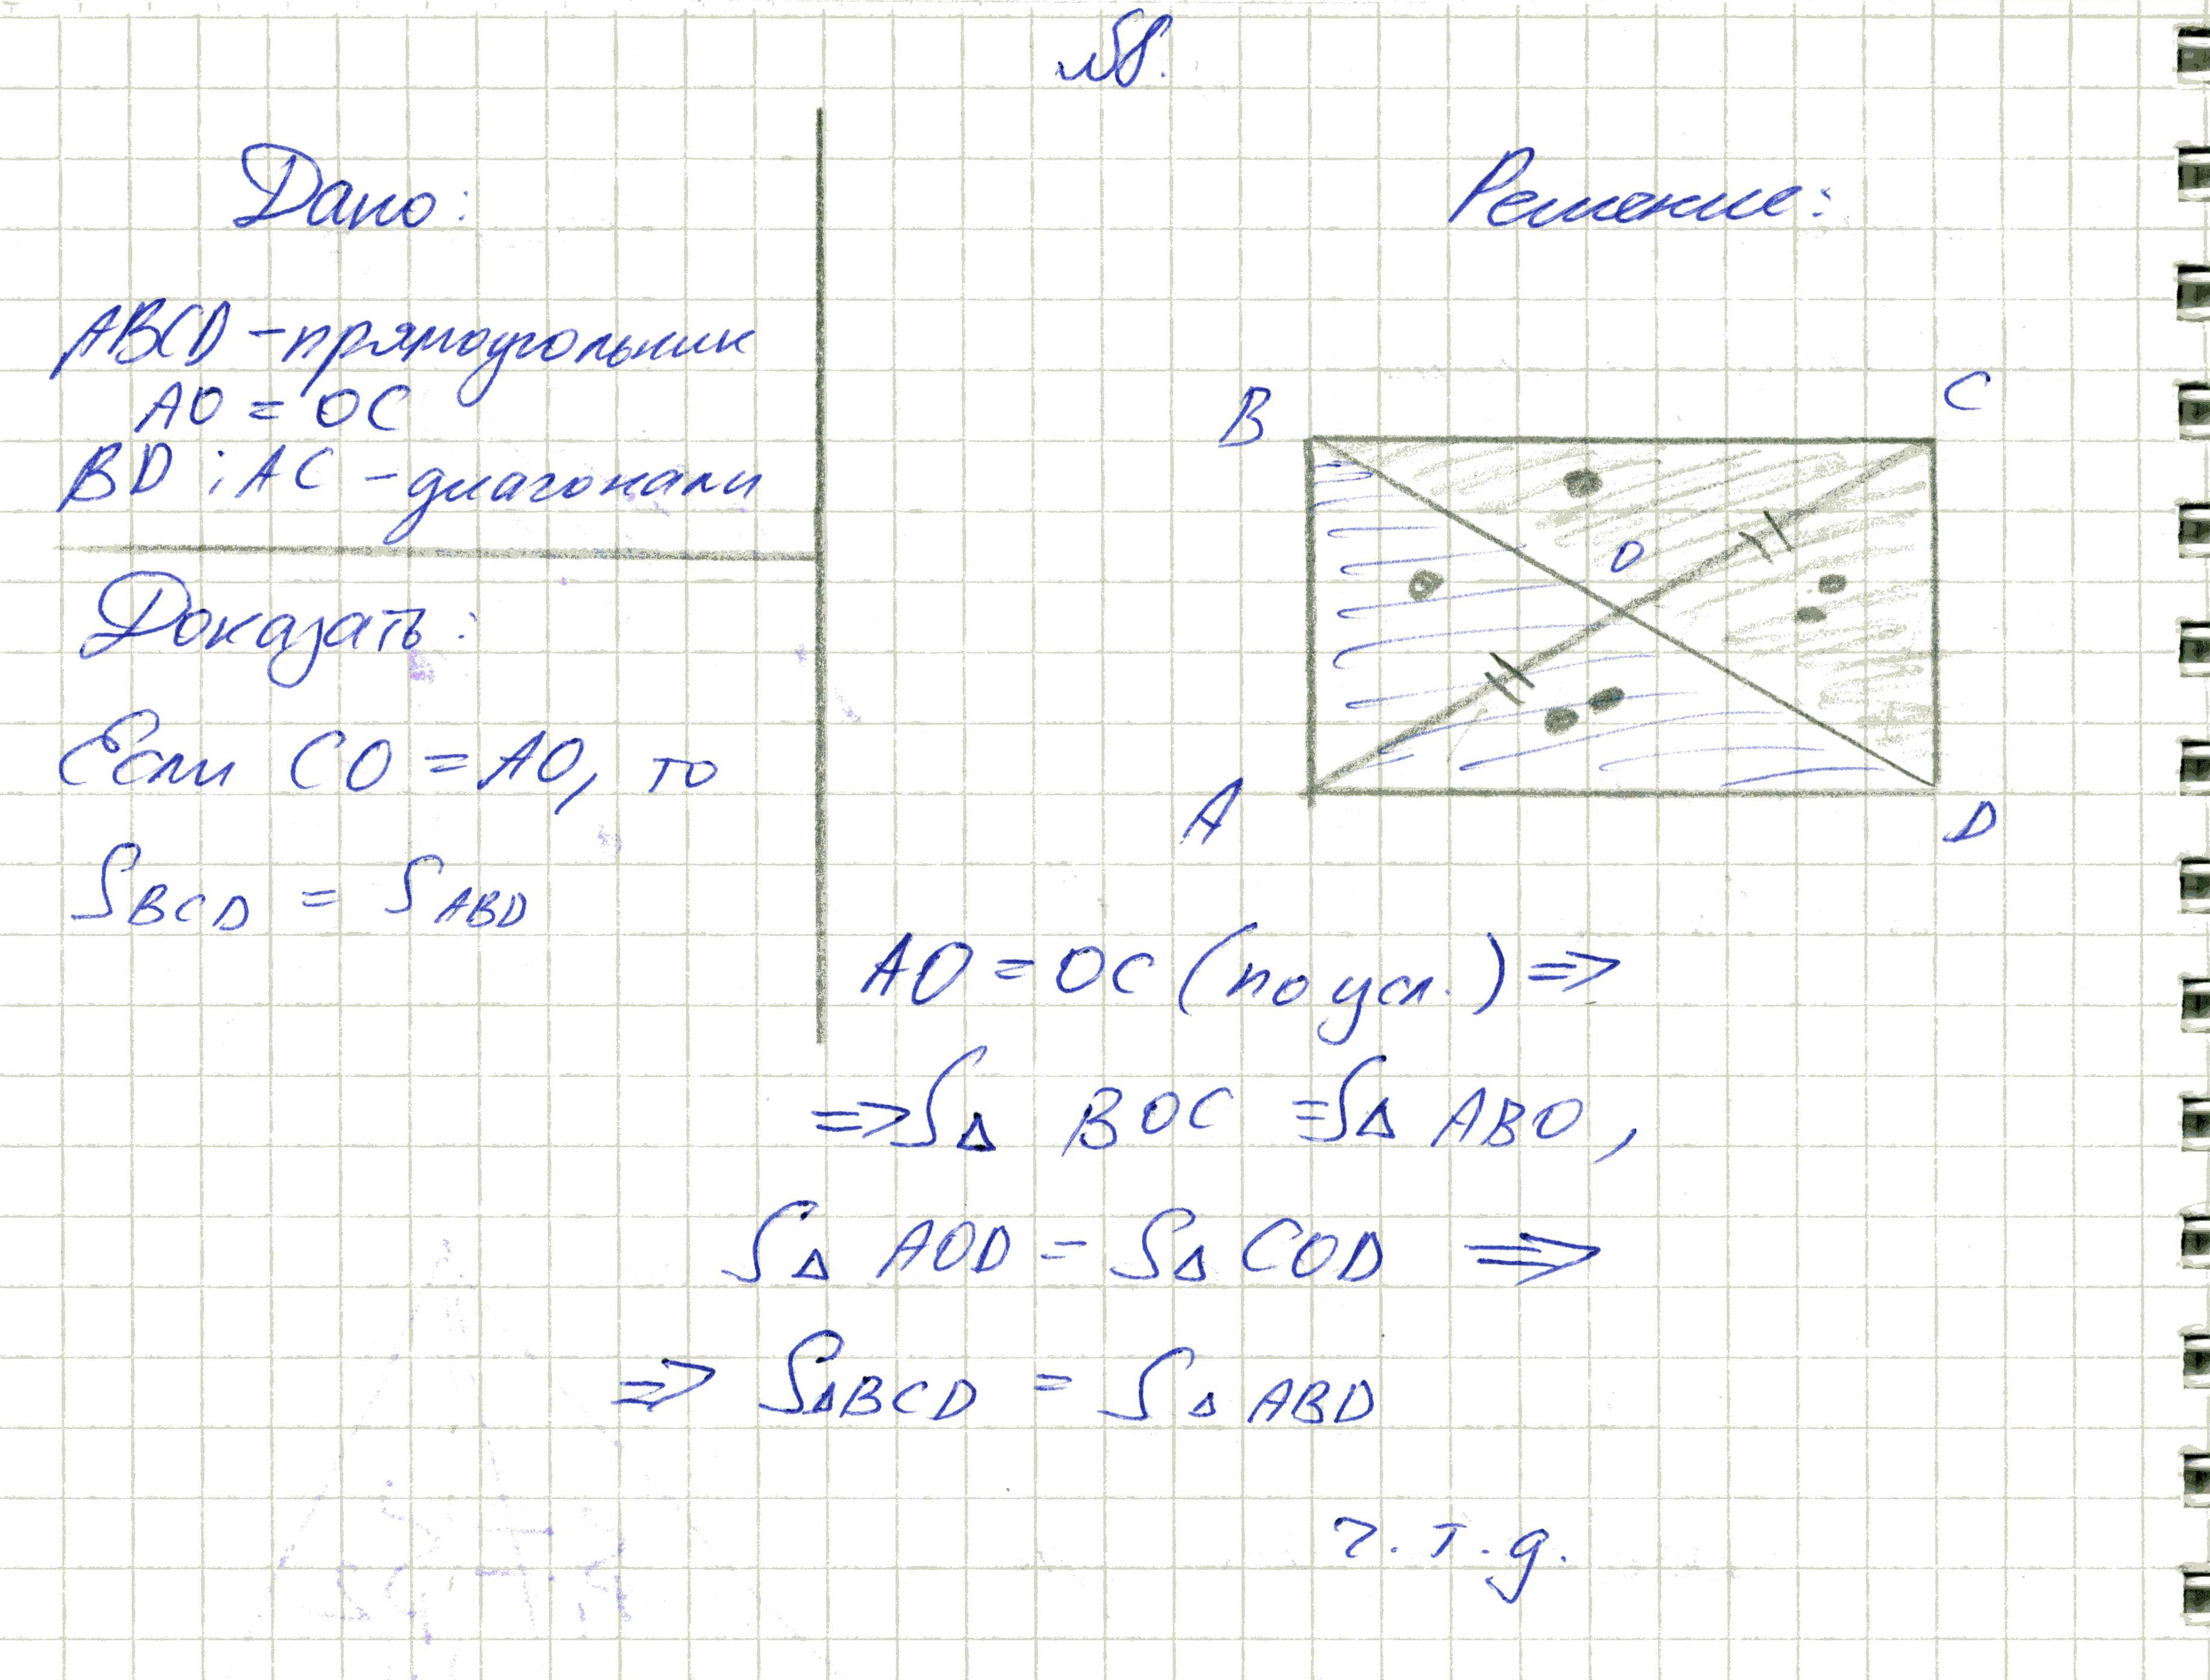 №8.
Дано:
ABCD – прямоугольник
AO = OC
BD ; AC – диагонали
Доказать:
Если CO = AO, то
S BCD = S ABD
Решение:
B
C
O
A
D
AO = OC (по усл.) =>
=> S△ BOC = S△ ABO,
S△ AOD = S△ COD =>
=> S△BCD = S△ ABD
ч.т.д.